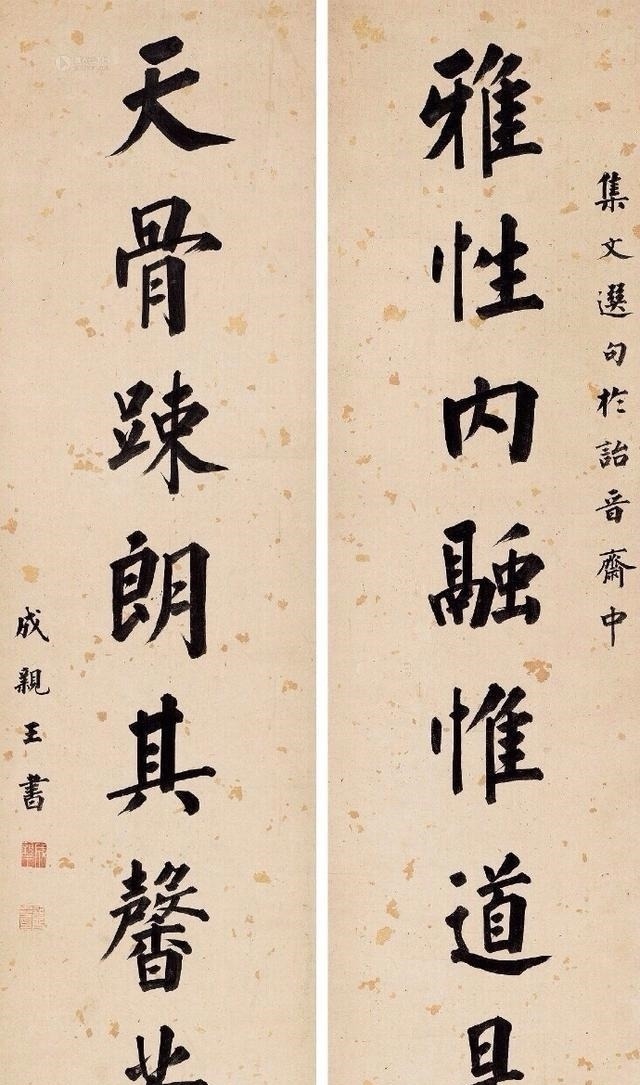 集文選句於詒晉齋中
雅性內融惟道
天骨踈朗其馨
成親王書